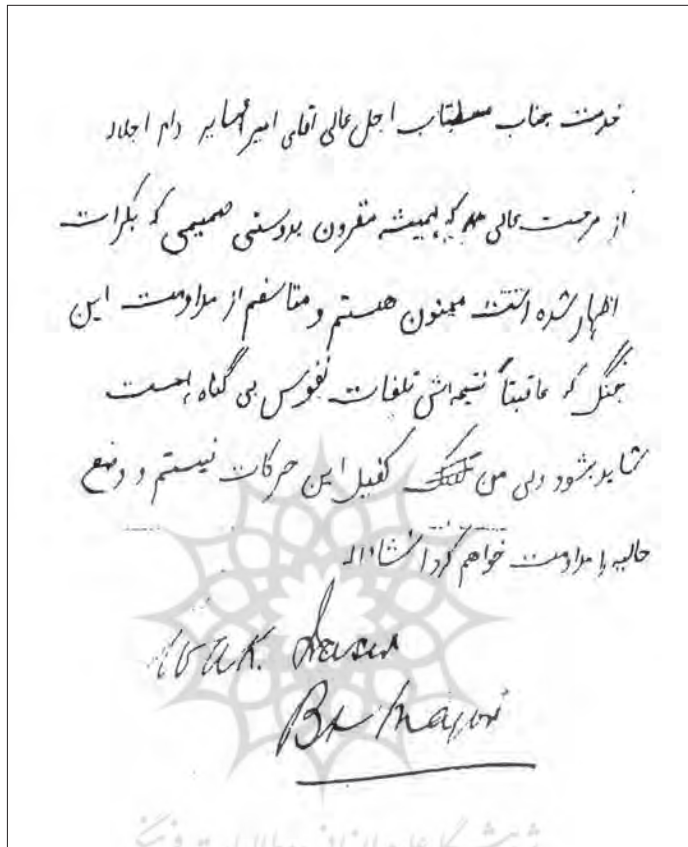 خدمت جناب مستطاب اجل عالی آقای امیر دام اجلاله
از مرحمت عالی که همیشه مقرون بدوستی صمیمی که بکرات
اظهار شده است ممنون هستم و متاسفم از مداومت این
جنگ که عاقبتاً نتیجه‌اش تلفات نفوس بی گناه است
شاید بشود ولی من کفیل این حرکات نیستم و وضع
حالیه را مداومت خواهم کرد انشاءالله
Br Major
پژوهشگاه علوم انسانی و مطالعات فرهنگی